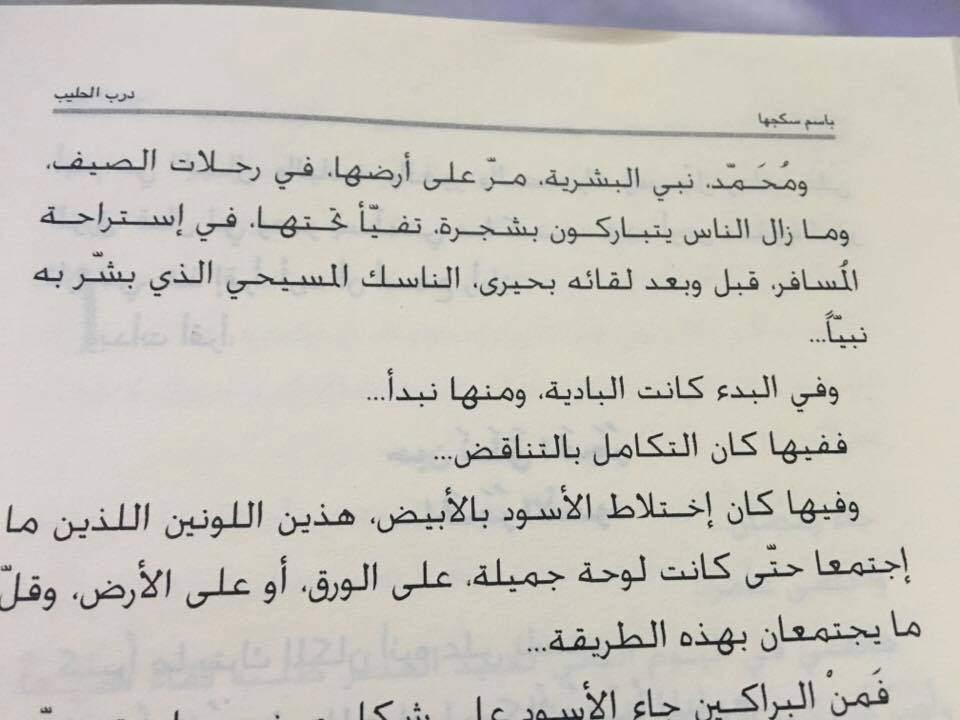 باسم سكجها
درب الحليب
ومُحَمّد، نبي البشرية، مرّ على أرضها، في رحلات الصيف،
وما زال الناس يتباركون بشجرة، تفيّأ تحتها، في إستراحة
المُسافر، قبل وبعد لقائه بحيرى، الناسك المسيحي الذي بشّر به
نبيّاً...
وفي البدء كانت البادية، ومنها نبدأ...
ففيها كان التكامل بالتناقض...
وفيها كان إختلاط الأسود بالأبيض، هذين اللونين اللذين ما
إجتمعا حتّى كانت لوحة جميلة، على الورق، أو على الأرض، وقلّ
ما يجتمعان بهذه الطريقة...
فَمنْ البراكين جاء الأسود على شكل